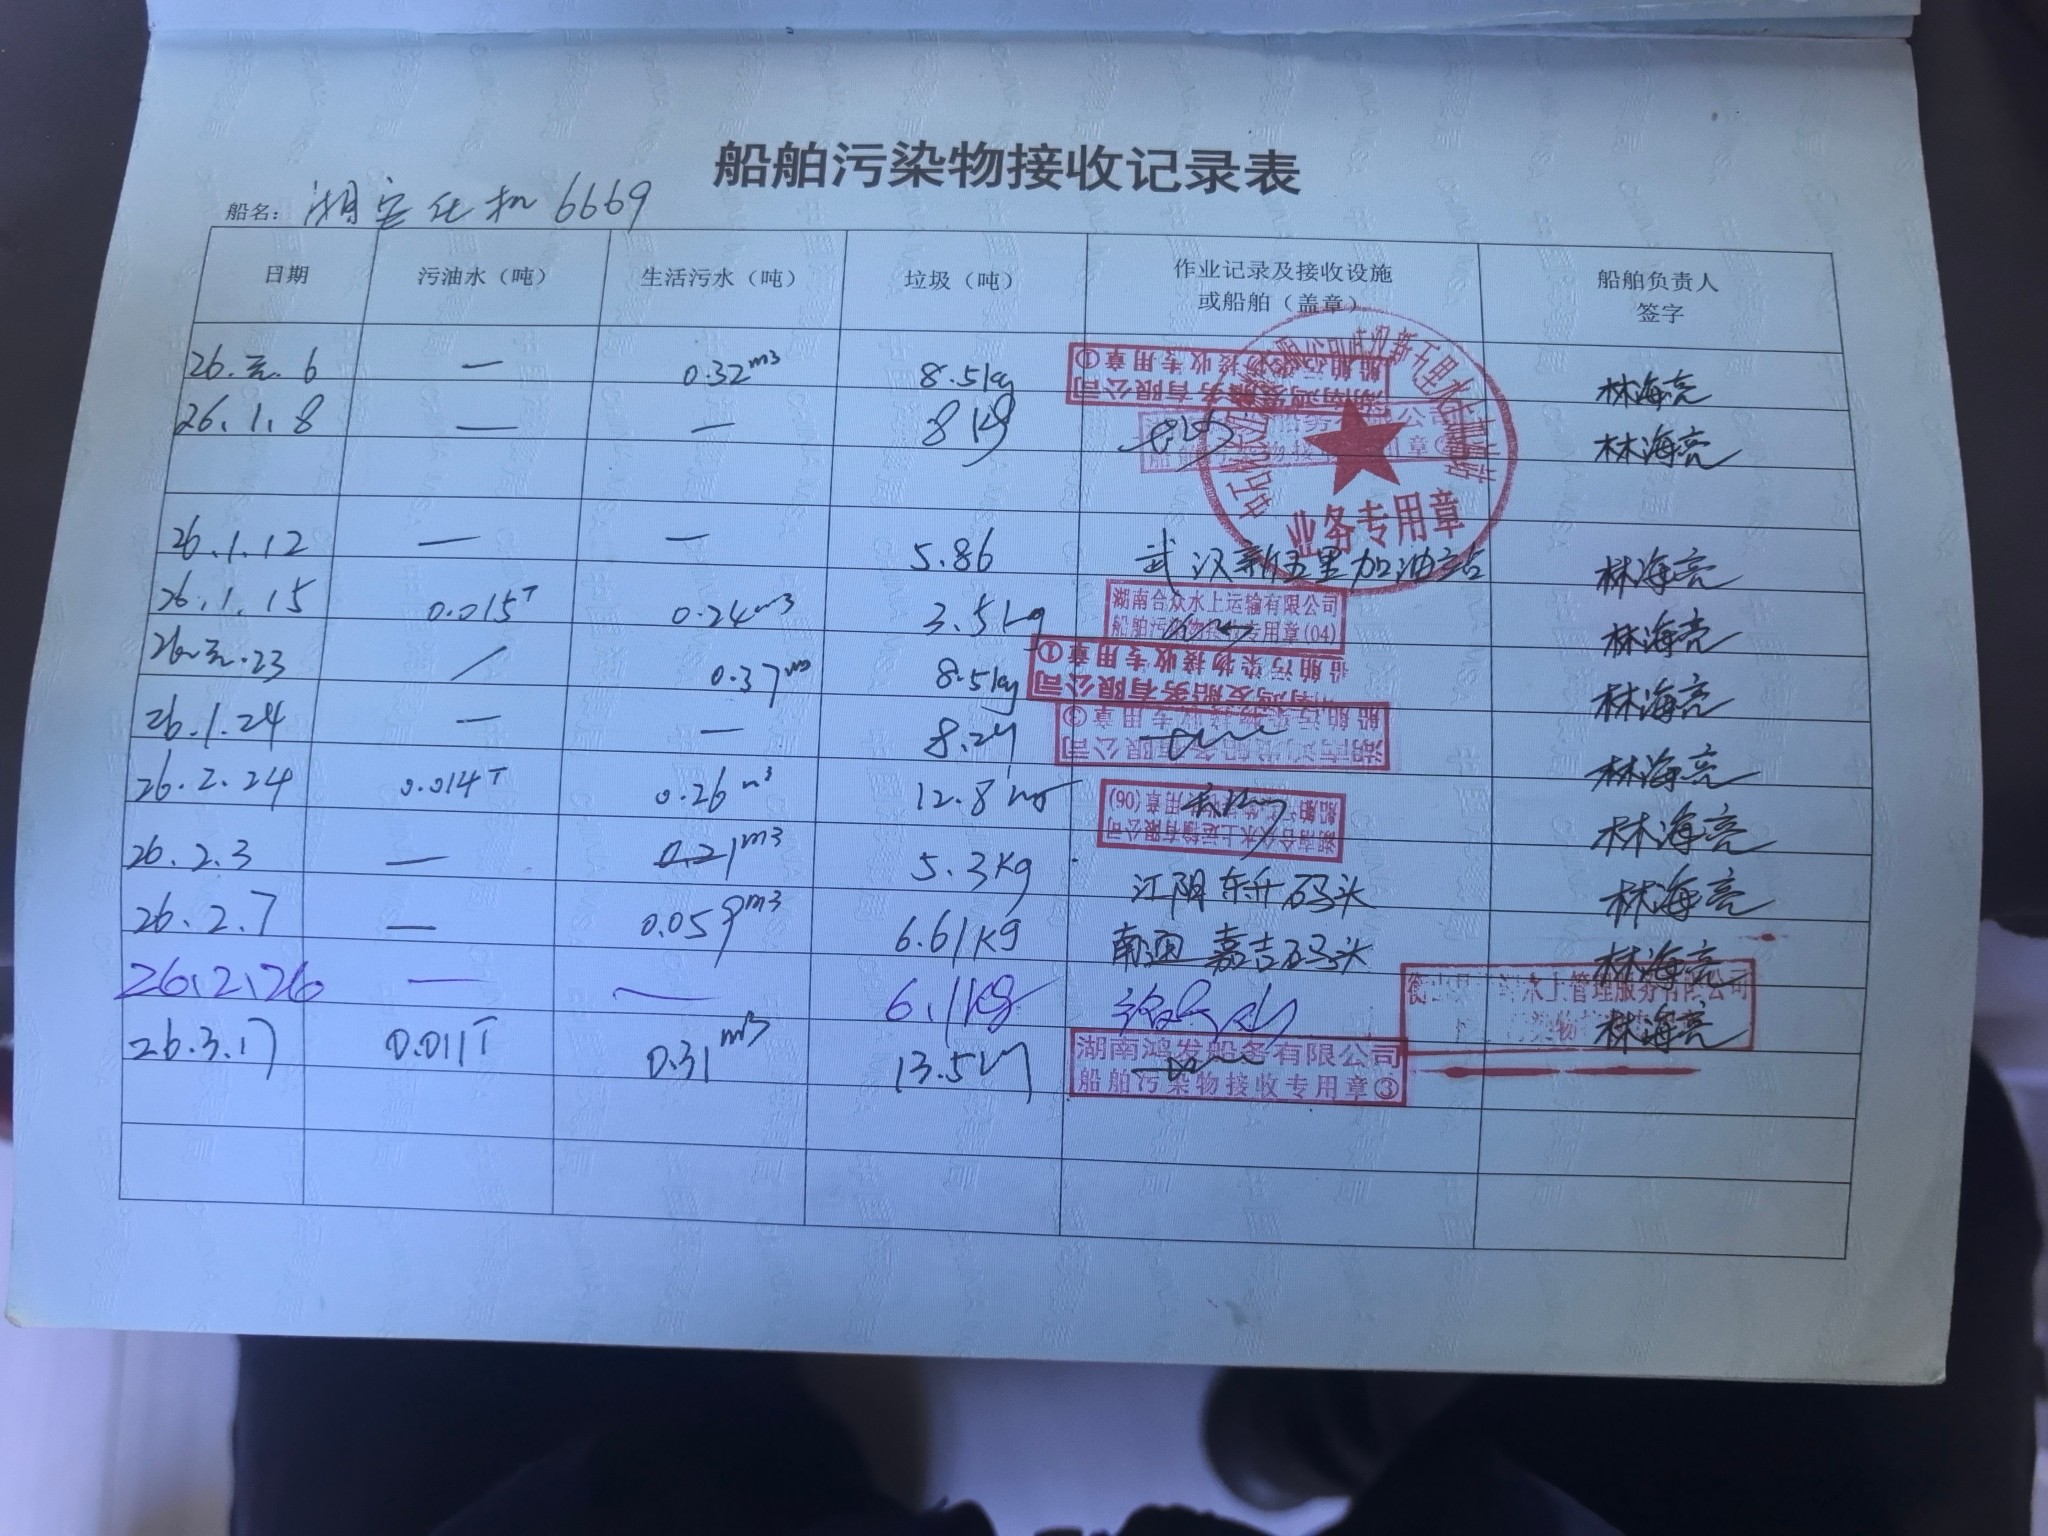 船舶污染物接收记录表
船名: 湘 机 6669
日期 污油水（吨） 生活污水（吨） 垃圾（吨） 作业记录及接收设施 或船舶（盖章） 船舶负责人 签字
26.元.6 — 0.32m3 8.5kg 湖南鸿发船务有限公司 船舶污染物接收专用章① 林海亮
26.1.8 — — 8kg 船务有限公司 林海亮
业务专用章
26.1.12 — — 5.86 武汉新五里加油站 林海亮
26.1.15 0.015T 0.24m3 3.5kg 湖南合众水上运输有限公司 船舶污染物接收专用章(04) 林海亮
26.元.23 / 0.37m 8.5kg 湖南鸿发船务有限公司 船舶污染物接收专用章① 林海亮
26.1.24 — — 8.2 湖南鸿发船务有限公司 船舶污染物接收专用章③ 林海亮
26.2.24 0.014T 0.26m3 12.8kg 湖南合众水上运输有限公司 船舶污染物接收专用章(06) 林海亮
26.2.3 — 0.21m3 5.3kg 江阴东升码头 林海亮
26.2.7 — 0.059m3 6.61kg 南通嘉吉码头 林海亮
26.2.26 — — 6.1kg 水上管理服务有限公司 林海亮
26.3.17 0.011T 0.31m3 13.5 湖南鸿发船务有限公司 船舶污染物接收专用章③